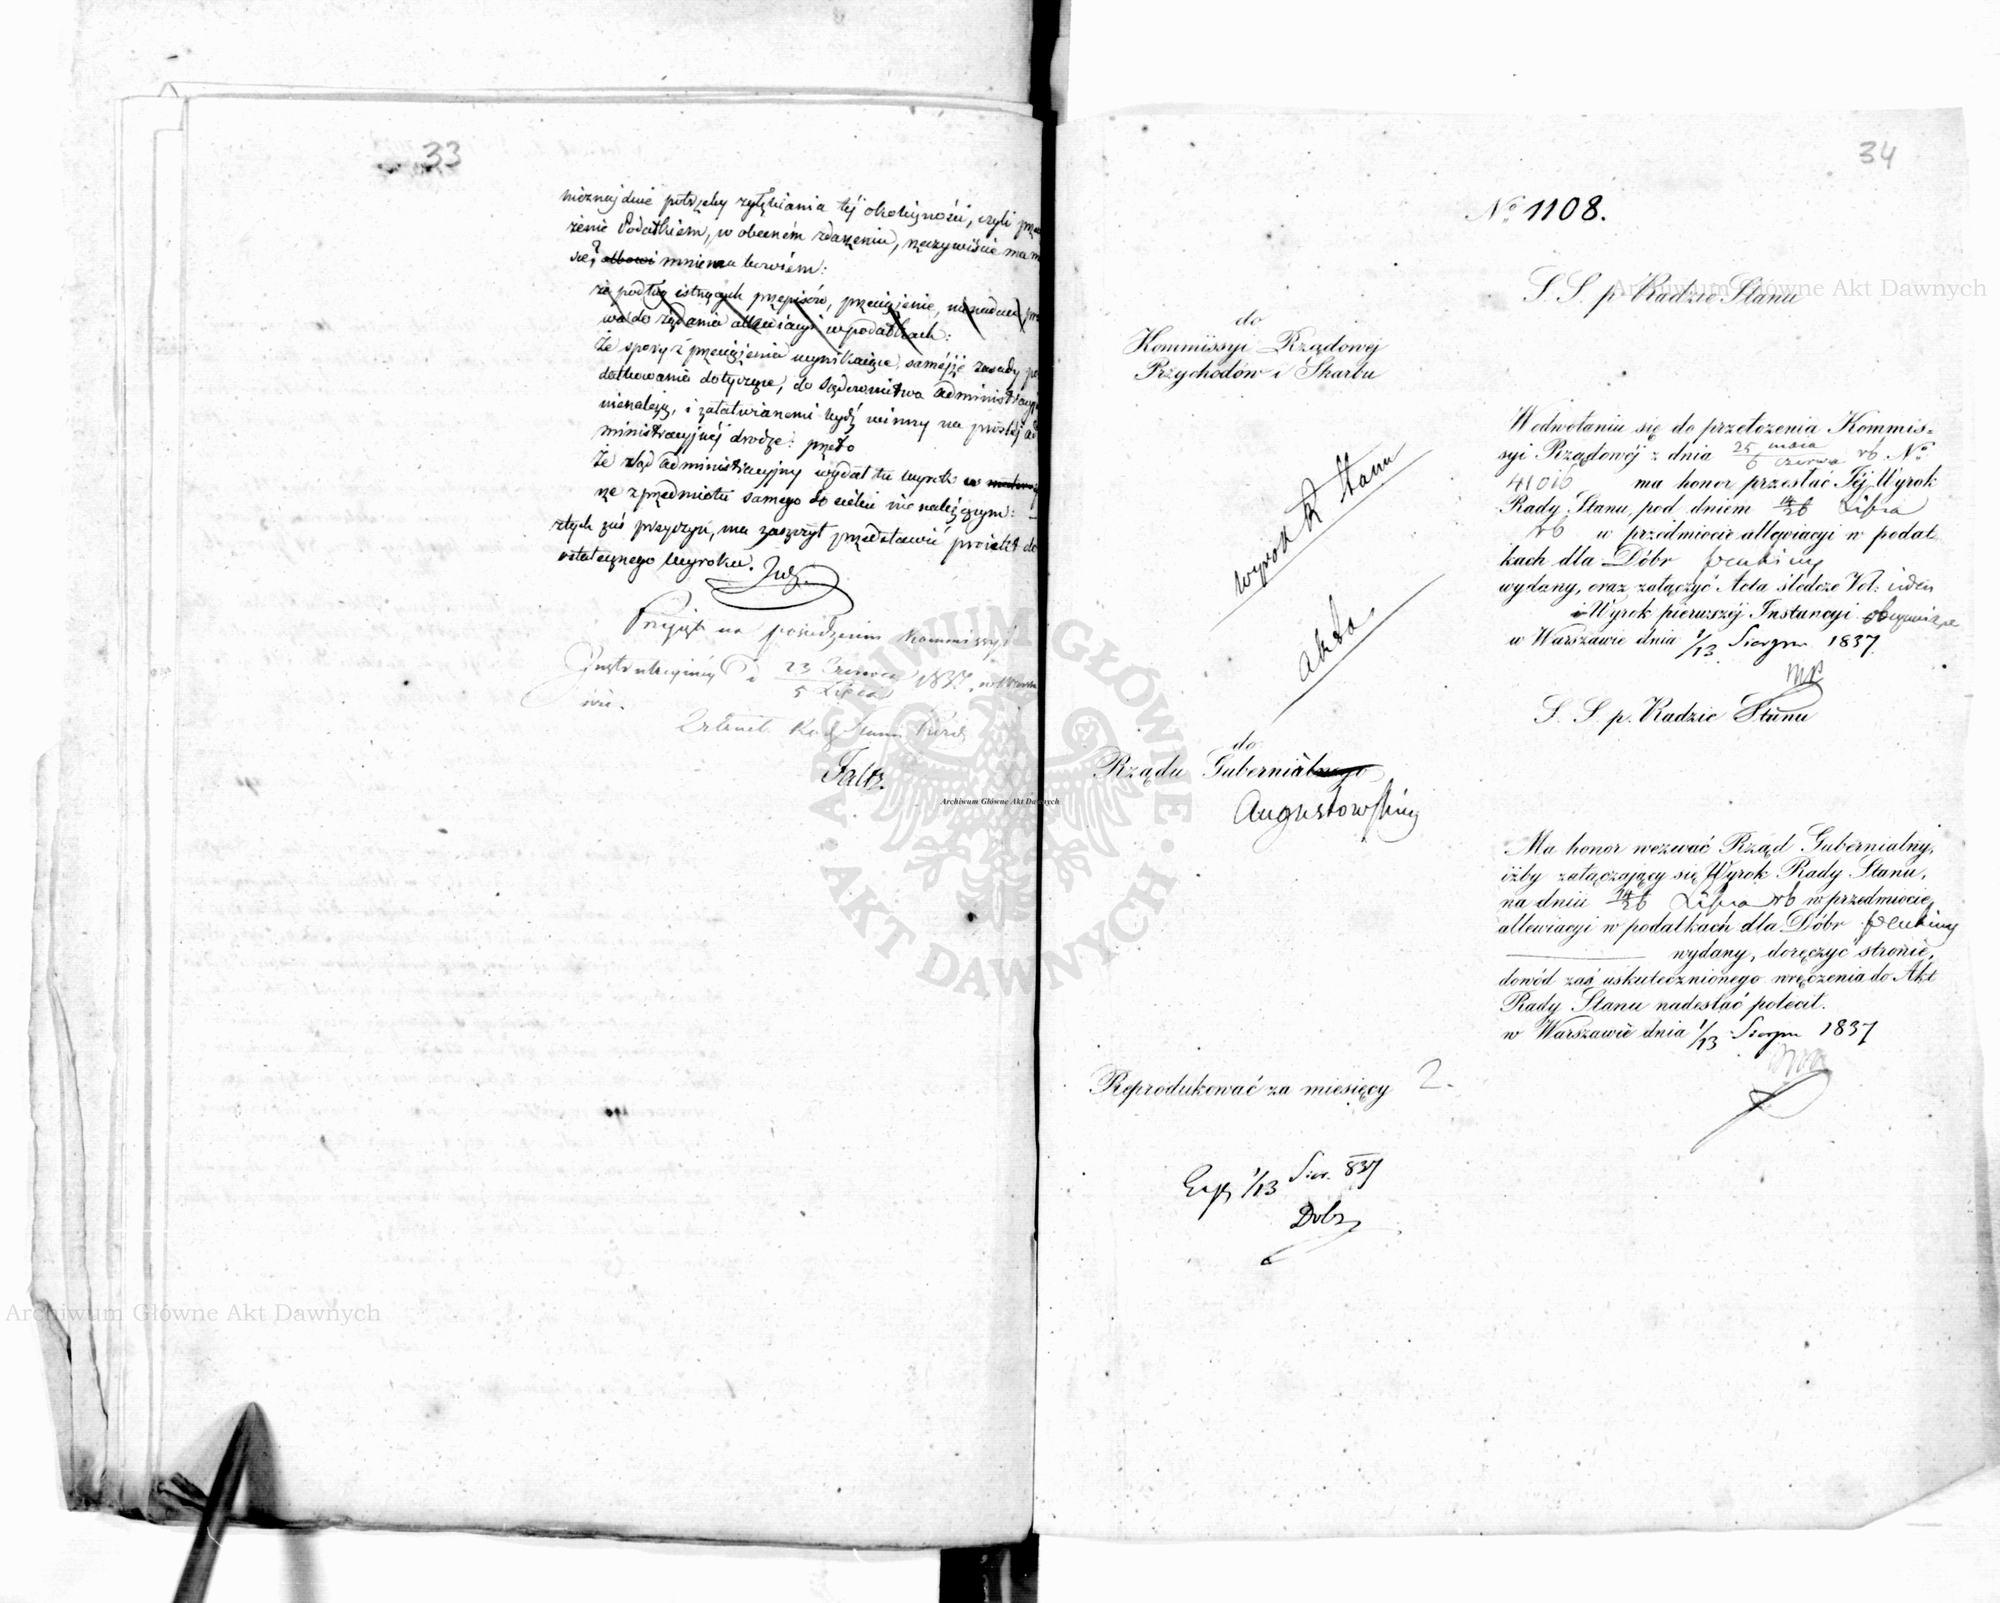 33
nieznajduie potrzeby zgłębiania téj okoliczności, czyli prze
żenie Podatkiem, w obecném zdarzeniu, rzeczywiście ma m
sce, albowi mniema bowiém:
że podług istnących przepisów, przeciążenie, nienadaie pra
wa do żądania allewiacyi w podatkach:
Że spory z przeciążenia wynikaiące, saméjże zasady po
datkowania dotyczące, do Sądownictwa administracyi
nienależą, i załatwianemi bydź winny na prostéj ad
ministracyjnéj drodze: przeto
Że sąd administracyjny wydał tu wyrok w
rze z przedmiotu samego do siebie nie należącym:
z tych zaś przyczyn, ma zaszczyt przedstawić proiekt do
ostatecznego wyroku.
Przyjęto na posiedzeniu Kommissyi
Instrukcyjnéj d 23 Czerwca / 5 Lipca 1837. w Warsza
wie.
34
No 1108.
S. S. p. Radzie Stanu
do
Kommissyi Rządowéj
Przychodów i Skarbu
W odwołaniu się do przełożenia Kommis-
syi Rządowéj z dnia 25 maia / 6 czerwca rb No
41016 ma honor przesłać Téj Wyrok
Rady Stanu, pod dniem 14/26 Lipca
rb w przedmiocie allewiacyi w podat-
kach dla Dóbr
wydany, oraz załączyć Acta śledcze Vol: ieden
i Wyrok pierwszéj Instancyi
w Warszawie dnia 1/13 Sierpn 1837.
wyrok R Stanu
akta
S. S. p. Radzie Stanu
do
Rządu Gubernialnego
Augustowskieg
Ma honor wezwać Rząd Gubernialny,
iżby załączający się Wyrok Rady Stanu,
na dniu 14/26 Lipca rb w przedmiocie
allewiacyi w podatkach dla Dóbr
wydany, doręczyć stronie,
dowód zaś uskutecznionego wręczenia do Akt
Rady Stanu nadesłać polecił.
w Warszawie dnia 1/13 Sierpn 1837
Reprodukować za miesięcy 2.
Exp 1/13 Sier. 837
Dobr
Archiwum Główne Akt Dawnych
Archiwum Główne Akt Dawnych
Archiwum Główne Akt Dawnych
ARCHIWUM GŁÓWNE
AKT DAWNYCH